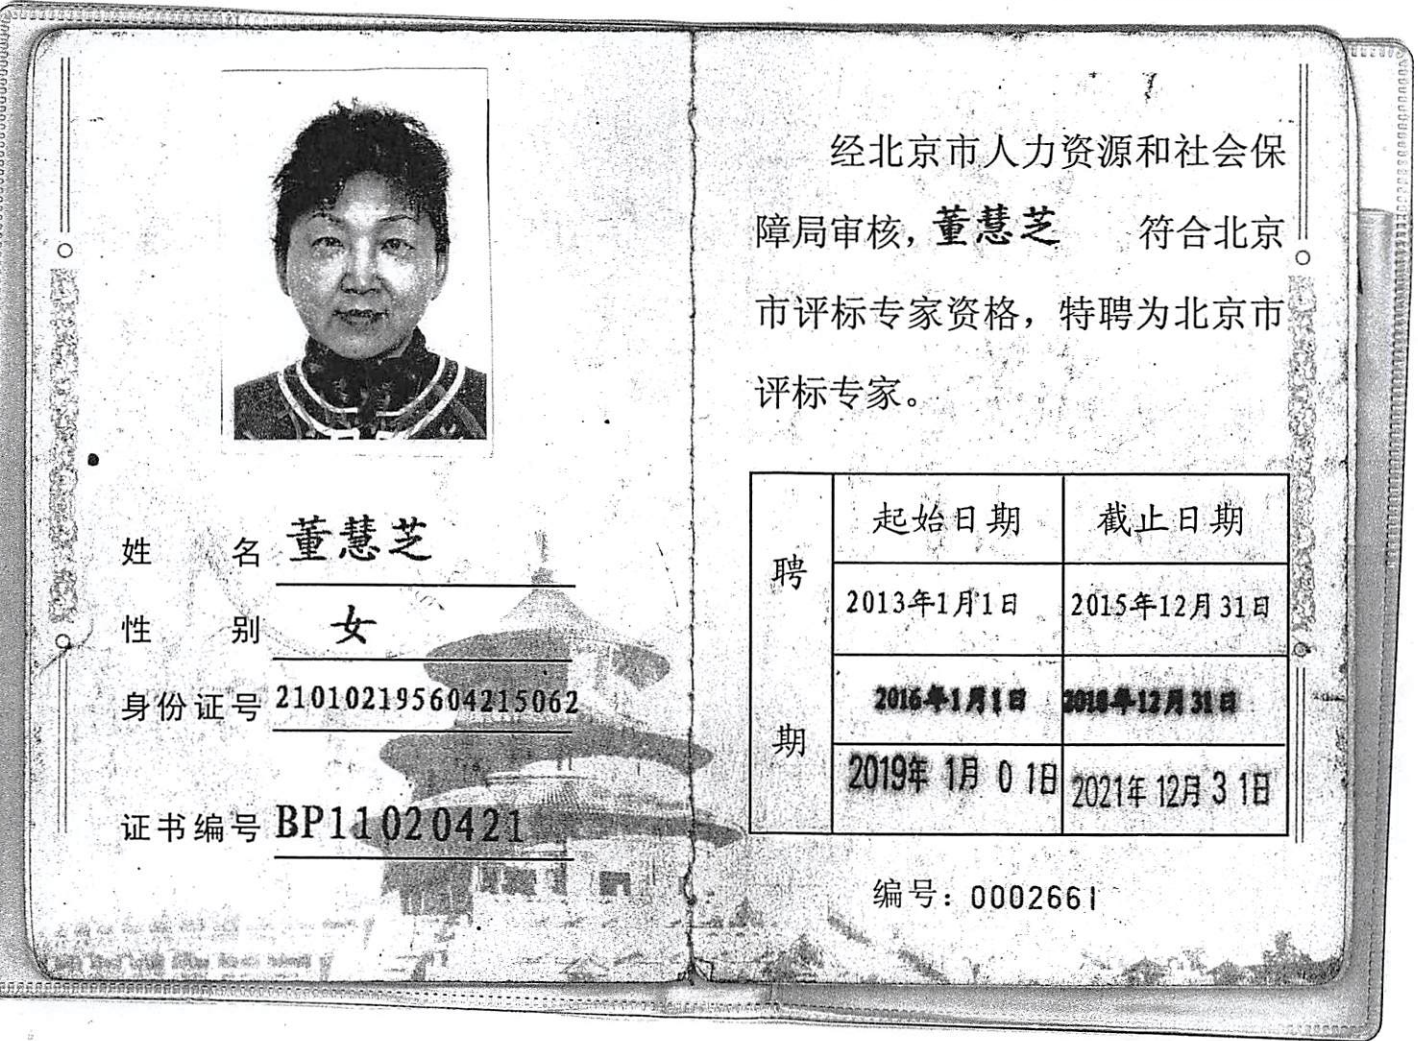 姓 名 董慧芝
性 别 女
身份证号 210102195604215062
证书编号 BP11020421
经北京市人力资源和社会保
障局审核，董慧芝 符合北京
市评标专家资格，特聘为北京市
评标专家。
聘期
起始日期 截止日期
2013年1月1日 2015年12月31日
2016年1月1日 2018年12月31日
2019年 1月 0 1日 2021年 12月 3 1日
编号：0002661